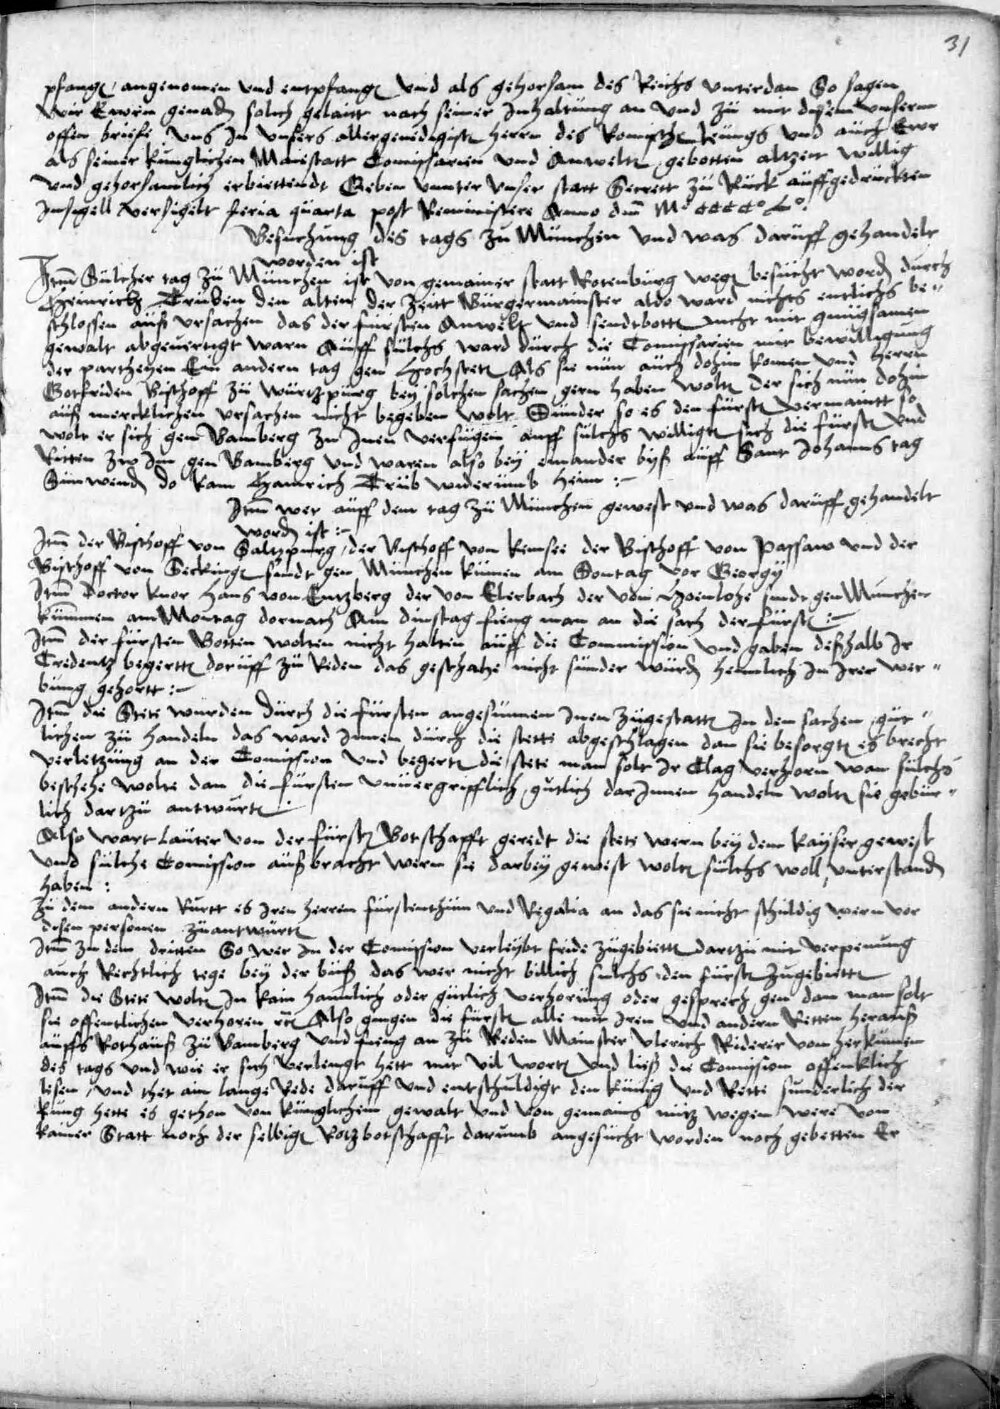 31
pfangẽ angenomen vnd entpfangẽ vnd als gehorsam des Reichs vnterdan So sagen
wir Ewrn genadẽ solich gelaitt nach seiner Inhaltung an vnd zu mit disem vnserm
offen briefe vns In vnsers allergenedigistẽ herrn des Romischẽ künigs vnd auch Ewr
als seiner kunglichen Maiestatt Comissarien vnd Anweltẽ gebotten altzeit willig
vnd gehorsamlich erbiettendt Geben vnnter vnser statt Secrett zu Rück auffgedruckten
Insigell versigelt feria quarta post Reminiscere Anno dm̄ M° CCCC° L°:
Besuchung des tags zu München vnd was darüff gehandelt
worden ist
Itm̄ Sülcher tag zu München ist von gemainer statt Rotenburg wegẽ besucht wordẽ durch
Heinrichẽ Trüben den alten der zeitt Bürgermainster aldo ward nichts entlichs be=
schlossen auß vrsachen das der fürsten Anwelt vnd sendtbottẽ nicht mit gnugsamen
gewalt abgeuertigt warn Auff sülchs ward durch die Comissarien mit bewilligung
der partheyen Ein andern tag gen Hochstett Als sie nün auch dohin komen vnd herrn
Gotfriden Bischoff zu würtzpürg bey solchen sachen gern haben woltẽ Der sich nün dohin
auß mercklichen vrsachen nicht begeben wolt Sünder so es den fürstẽ vermaintt so
wolt er sich gen Bamberg zu Inen verfügen auff sülchs willigtẽ sich die fürstẽ vnd
Ritten zw Im gen Bamberg vnd waren also bey einander byß auff Sant Johanns tag
Sünwendẽ do kam Hainrich Trüb widerümb heim :~
Itm̄ wer auff dem tag zu München gewest vnd was darüff gehandelt
wordẽ ist :~
Itm̄ der Bischoff von Saltzpurg / der Bischoff von kemsee der Bischoff von Passaw vnd der
Bischoff von Seckingẽ sindt gen München kumen am Sontag vor Georgÿ
Itm̄ Doctor knor Hans von Entzberg der von Elerbach der von Hoenlohe sindt gen München
kümmen am Montag dornach Am dinstag fieng man an die sach der fürstẽ :~
Itm̄ der fürsten Botten wolten nicht halten auff die Commission vnd gaben deßhalb Ir
Credentz begertẽ dorüff zu Reden das geschahe nicht sünder würdẽ heimlich In Irer wer=
bung gehortt :~
Itm̄ die Stete wurden durch die fürsten angesunnen Inen zugestattẽ In den sachen gut=
lichen zu handeln das ward Innen durch die stette abgeschlagen dan sie besorgtẽ es brecht
verletzung an der Comission vnd begertẽ die stete man solt Ir Clag verhorn wan sülchs
beschehe wolte dan die fürsten vnuergrifflich gütlich dar Innen handeln woltẽ sie gebür=
lich dartzu antwurtẽ :
Also wart Lauter von der fürstẽ Botschafft geredt die stete wern bey dem kayser gewest
vnd sülche Comission außbracht wern sie darbey gewest woltẽ sülchs woll vnterstandẽ
haben :
Zu dem andern Rurtt es Iren herren fürstenthüm vnd Regalia an das sie nicht schuldig wern vor
desen personen zuantwürtẽ
Itm̄ zu dem dritten So wer In der Comission verleybt fride zugebiettẽ dartzu mit verpenung
auch Rechtlich tege bey der büß das wer nicht billich sülchs den fürstẽ zugebiettẽ
Itm̄ die Stete woltẽ In kain haimlich oder gütlich verhorung oder gesprech gen dan man solt
sie offentlichen verhoren rc̃ Also giengen die fürstẽ alle mit Iren vnd andern Retten herauß
auffs Rothauß zu Bamberg vnd fieng an zu Reden Mainster vlerich Riderer von herkumen
des tags vnd wie er sich verlengt hett mit vil wortẽ vnd ließ die Comission offenlich
lesen / vnd thet ain lange Rede daruff vnd entschuldigt den künig vnd Rette sunderlich der
kung hette es gethon von kunglichem gewalt vnd von gemains nutz wegen were von
kainer Statt noch der selbigẽ Rotzbotschafft darumb angesucht worden noch gebetten Er